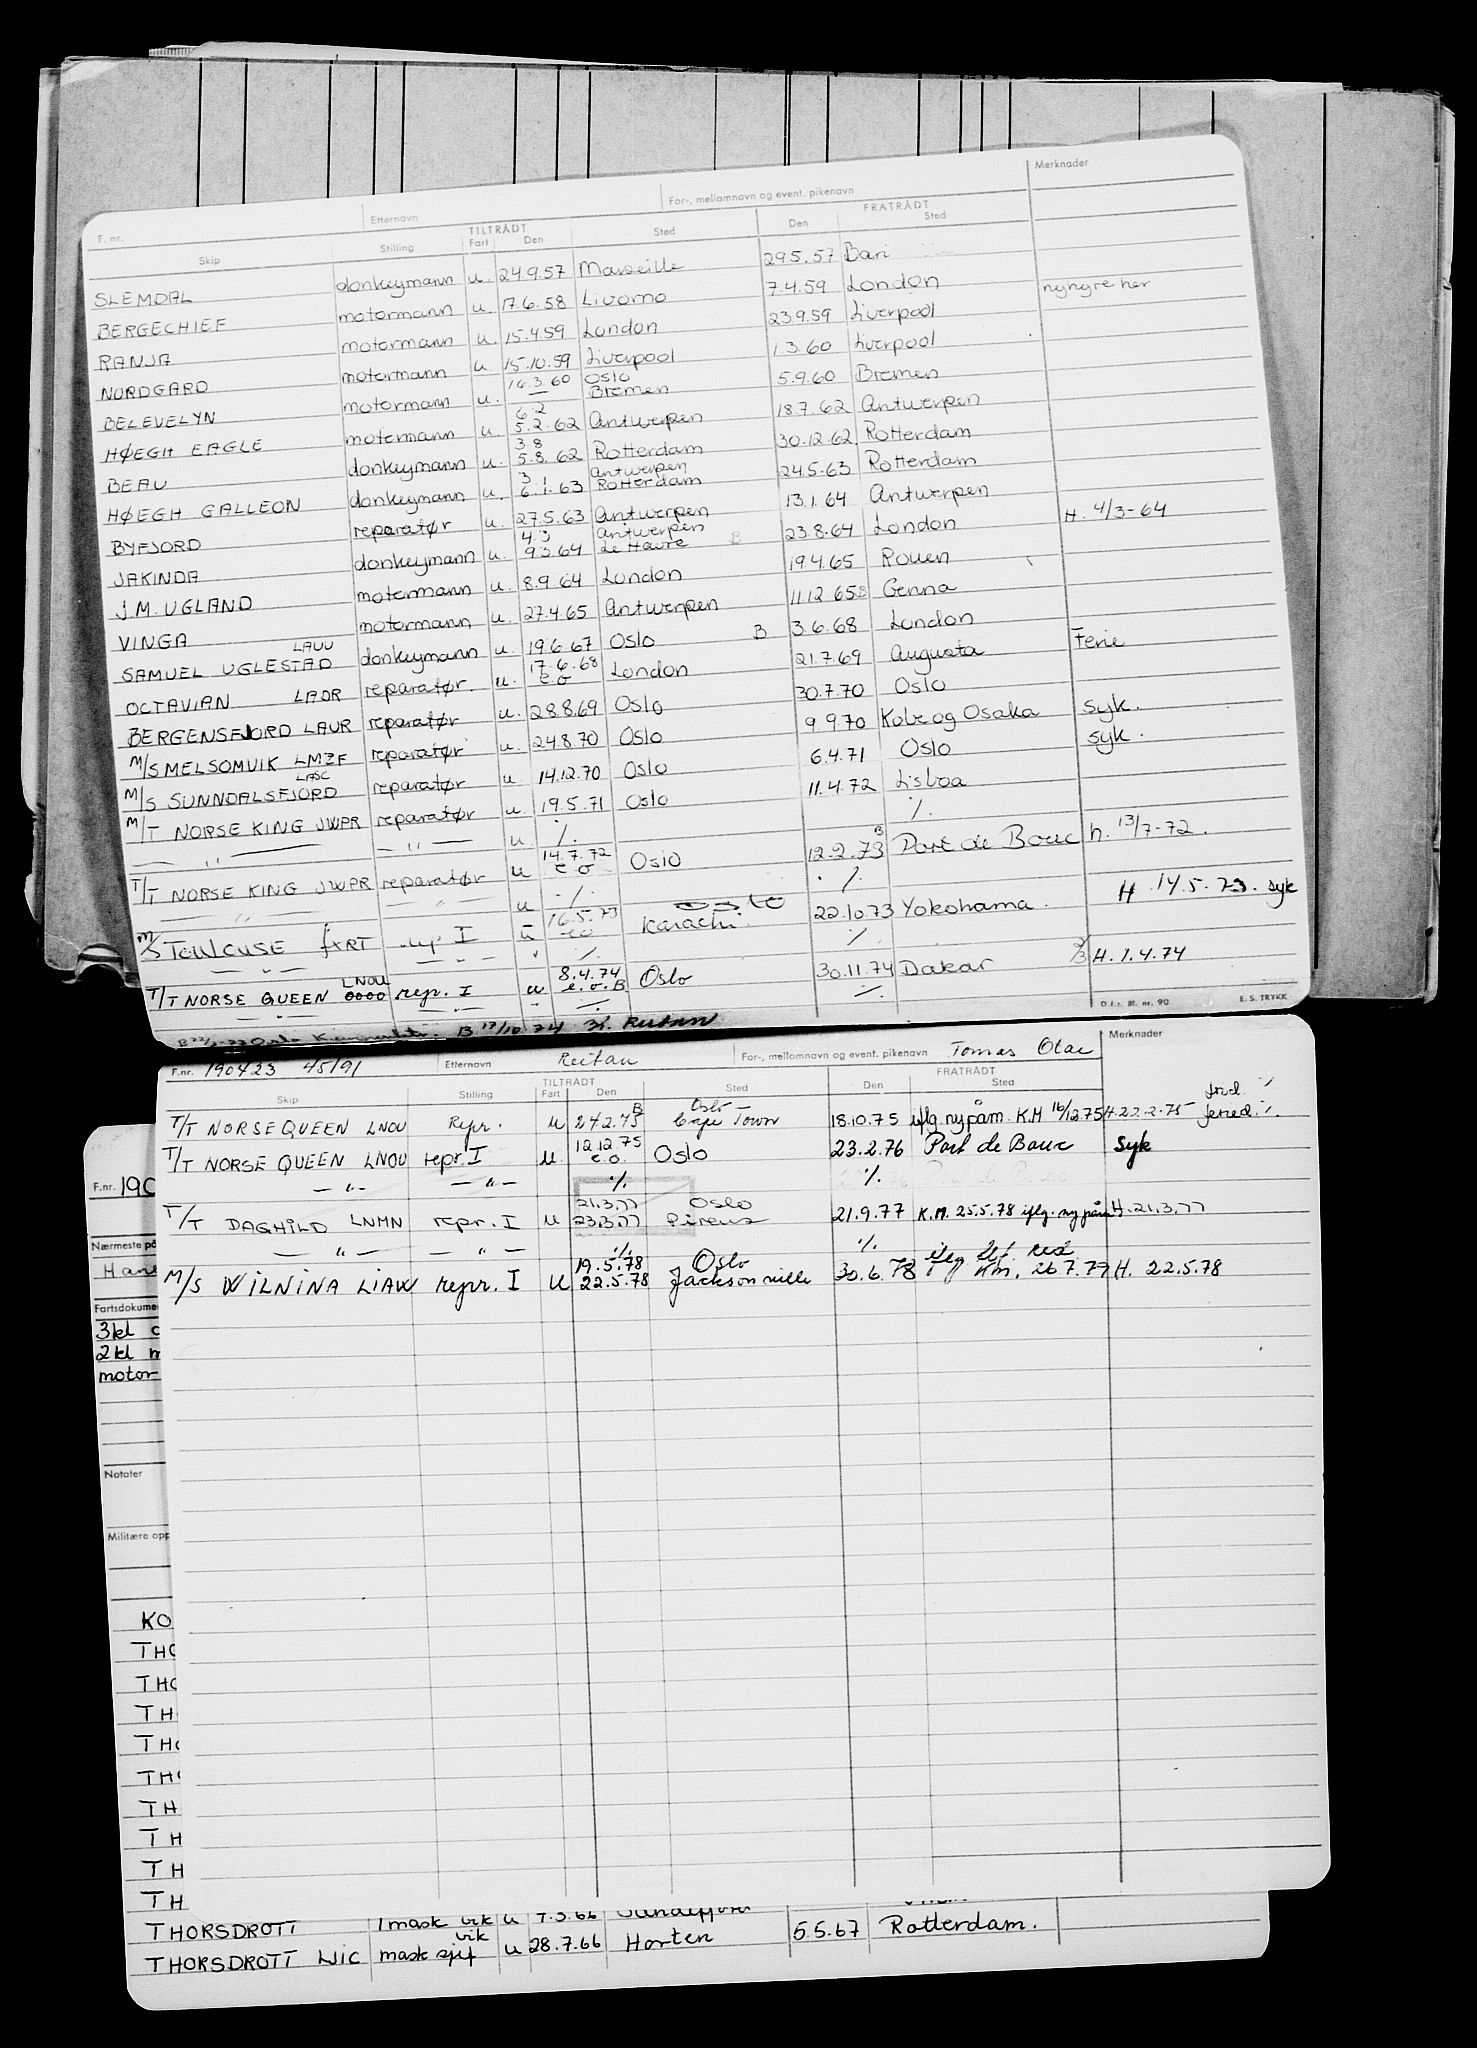 F. nr. Etternavn For-, mellomnavn og event. pikenavn Merknader
Skip Stilling TILTRÅDT Fart Den Sted FRATRÅDT Den Sted
SLEMDAL donkeymann u. 24.9.57 Marseille 29.5.57 Bari
BERGECHIEF motormann u. 17.6.58 Livorno 7.4.59 London nyhyre her
RANJA motormann u. 15.4.59 London 23.9.59 Liverpool
NORDGARD motormann u. 15.10.59 Liverpool 1.3.60 Liverpool
16.3.60 Oslo
BELEVELYN motormann u. — Bremen 5.9.60 Bremen
6.2
HØEGH EAGLE motormann u. 5.2.62 Antwerpen 18.7.62 Antwerpen
3.8
BEAU donkeymann u. 5.8.62 Rotterdam 30.12.62 Rotterdam
3.1 Antwerpen
HØEGH GALLEON donkeymann u. 6.1.63 Rotterdam 24.5.63 Rotterdam
BYFJORD reparatør u. 27.5.63 Antwerpen 13.1.64 Antwerpen
4.3 Antwerpen
JAKINDA donkeymann u. 9.3.64 Le Havre B 23.8.64 London H. 4/3-64
J.M. UGLAND motormann u. 8.9.64 London 19.4.65 Rouen
VINGA motormann u. 27.4.65 Antwerpen 11.12.65 Genna
LAUU
SAMUEL UGLESTAD donkeymann u. 19.6.67 Oslo B 3.6.68 London
17.6.68
OCTAVIAN LADR reparatør. u. e.o London 21.7.69 Augusta Ferie
BERGENSFJORD LAUR reparatør u. 28.8.69 Oslo 30.7.70 Oslo
M/S MELSOMVIK LMZF reparatør u. 24.8.70 Oslo 9.9.70 Kobe og Osaka syk.
LASC
M/S SUNNDALSFJORD reparatør u 14.12.70 Oslo 6.4.71 Oslo syk.
M/T NORSE KING JWPR reparatør u. 19.5.71 Oslo 11.4.72 Lisboa
— " — — " — u ./. ./.
14.7.72 B
T/T NORSE KING JWPR reparatør u e.o Oslo 12.2.73 Port de Bouc h. 13/7-72.
— " — " u ./. ./.
16.5.73 Oslo
M/S TOULOUSE rep I u e.o Karachi. 22.10.73 Yokohama. H. 14.5.73. syk
— " — — " — " ./. ./.
LNOU 8.4.74
T/T NORSE QUEEN rep. I u e.o.B Oslo 30.11.74 Dakar H. 1.4.74
— " — — " — ./. ./.
D.f.s. bl. nr. 90. E. S. TRYKK
B 17/10.74
F.nr. 190423 45/91 Etternavn Reitan For-, mellomnavn og event. pikenavn Tomas Olav Merknader
Skip Stilling TILTRÅDT Fart Den Sted FRATRÅDT Den Sted
B Oslo —
T/T NORSE QUEEN LNOU Repr. u 24.2.75 Cape Town 18.10.75 iflg. ny påm. K.M 16/12.75 H. 22.2.75
12.12.75
T/T NORSE QUEEN LNOU repr. I u. e.o. Oslo 23.2.76 Port de Bouc syk
— " — — " — ./. ./.
21.3.77 Oslo
T/T DAGHILD LNMN repr. I u 23.3.77 Pireus 21.9.77 K.M. 25.5.78 iflg. ny påm H. 21.3.77
— " — — " — ./. ./.
19.5.78 Oslo
M/S WILNINA LIAW repr. I u 22.5.78 Jacksonville 30.6.78 H. 22.5.78
F.nr. 190
Nærmeste på
Hans
Fartsdokume
3kl
2kl m
motor
Notater
Militære opp
KO
THO
THO
TH
THO
TH
TH
TH
TH
TH
THORSDROTT 1 mask vik u 7.3.66
vik
THORSDROTT LJIC mask sjef u 28.7.66 Horten 5.5.67 Rotterdam.